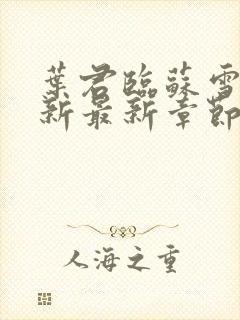 葉君臨蘇雪
新最新章節
人海之重